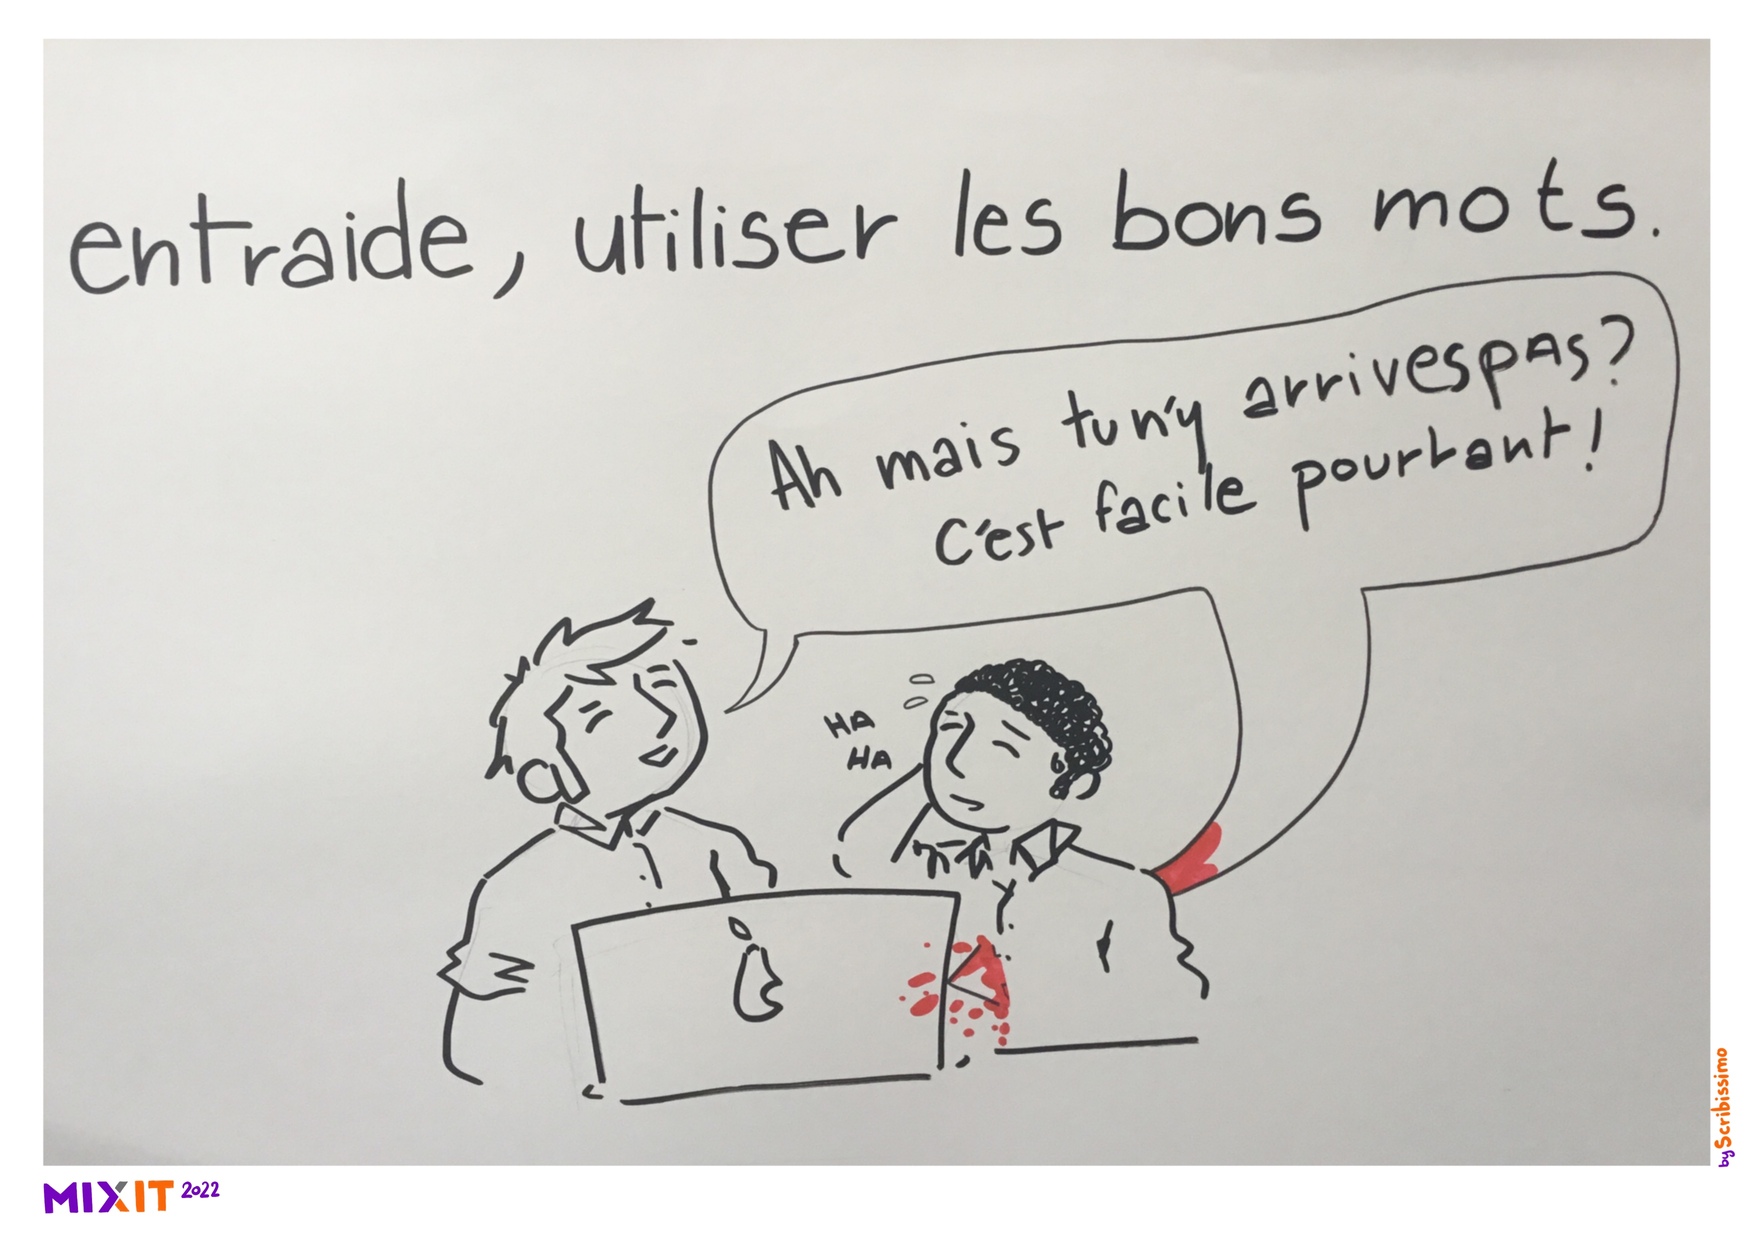 entraide, utiliser les bons mots.
Ah mais tu n'y arrives pas?
C'est facile pourtant!
HA
HA
by Scribissimo
MIXIT 2022